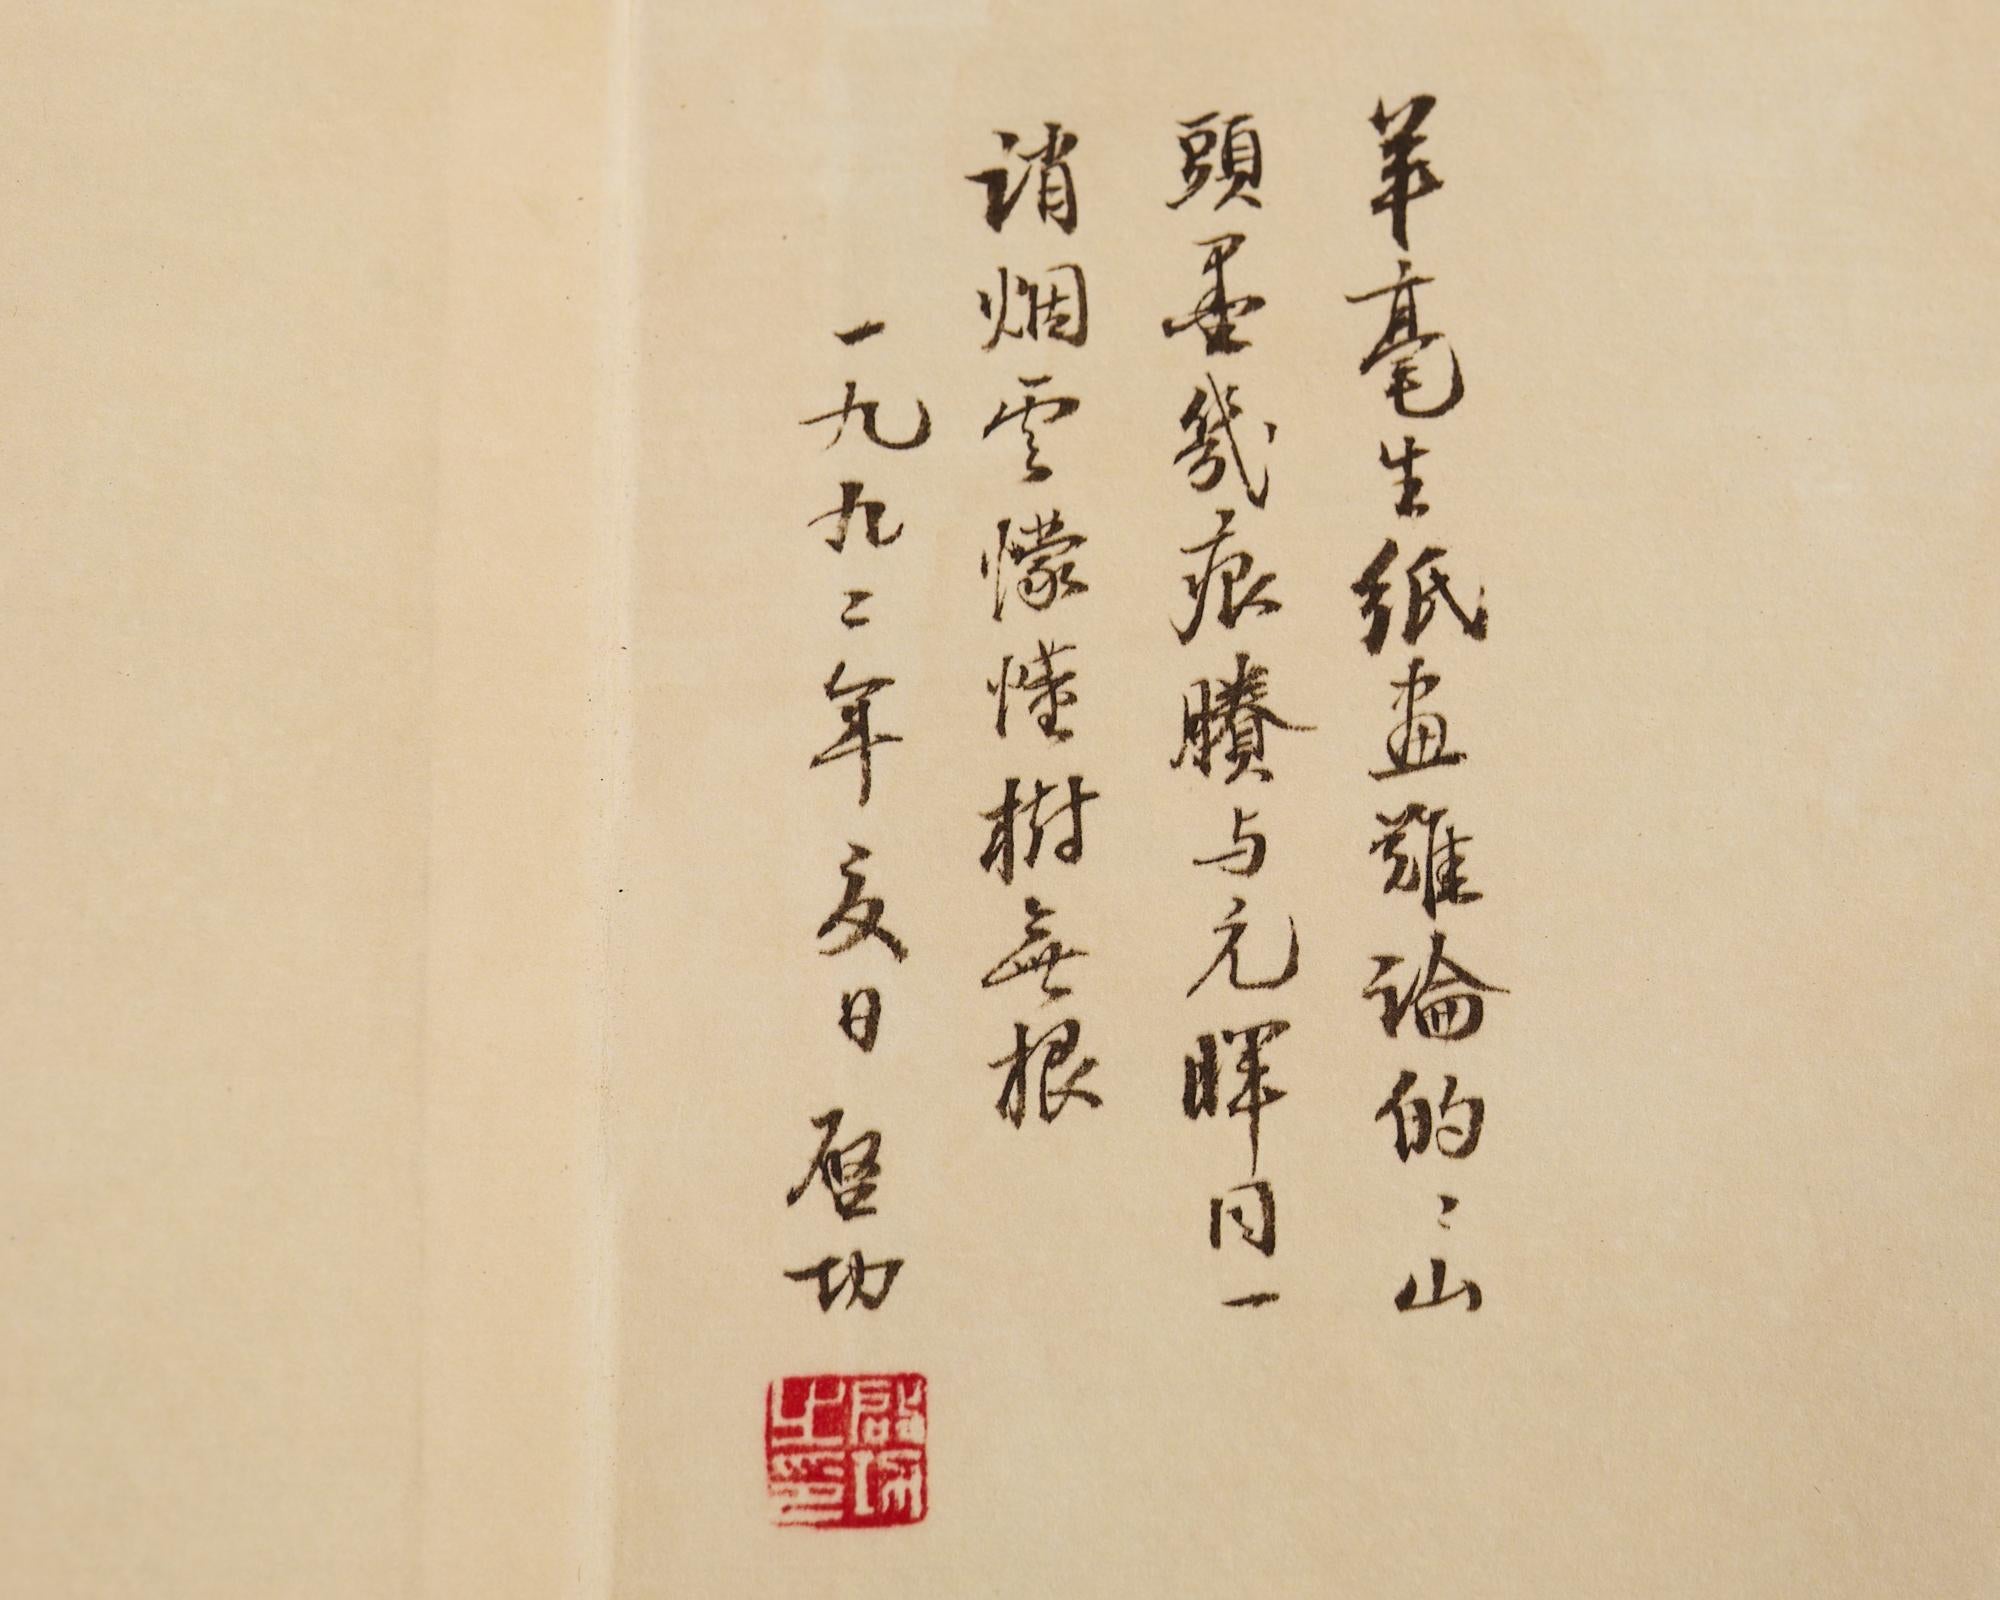 羊毫生紙畫難論的〻山
頭墨幾痕賸与元暉同一
誚烟雲懞懂樹無根
一九九二年夏日 启功
啟功之印